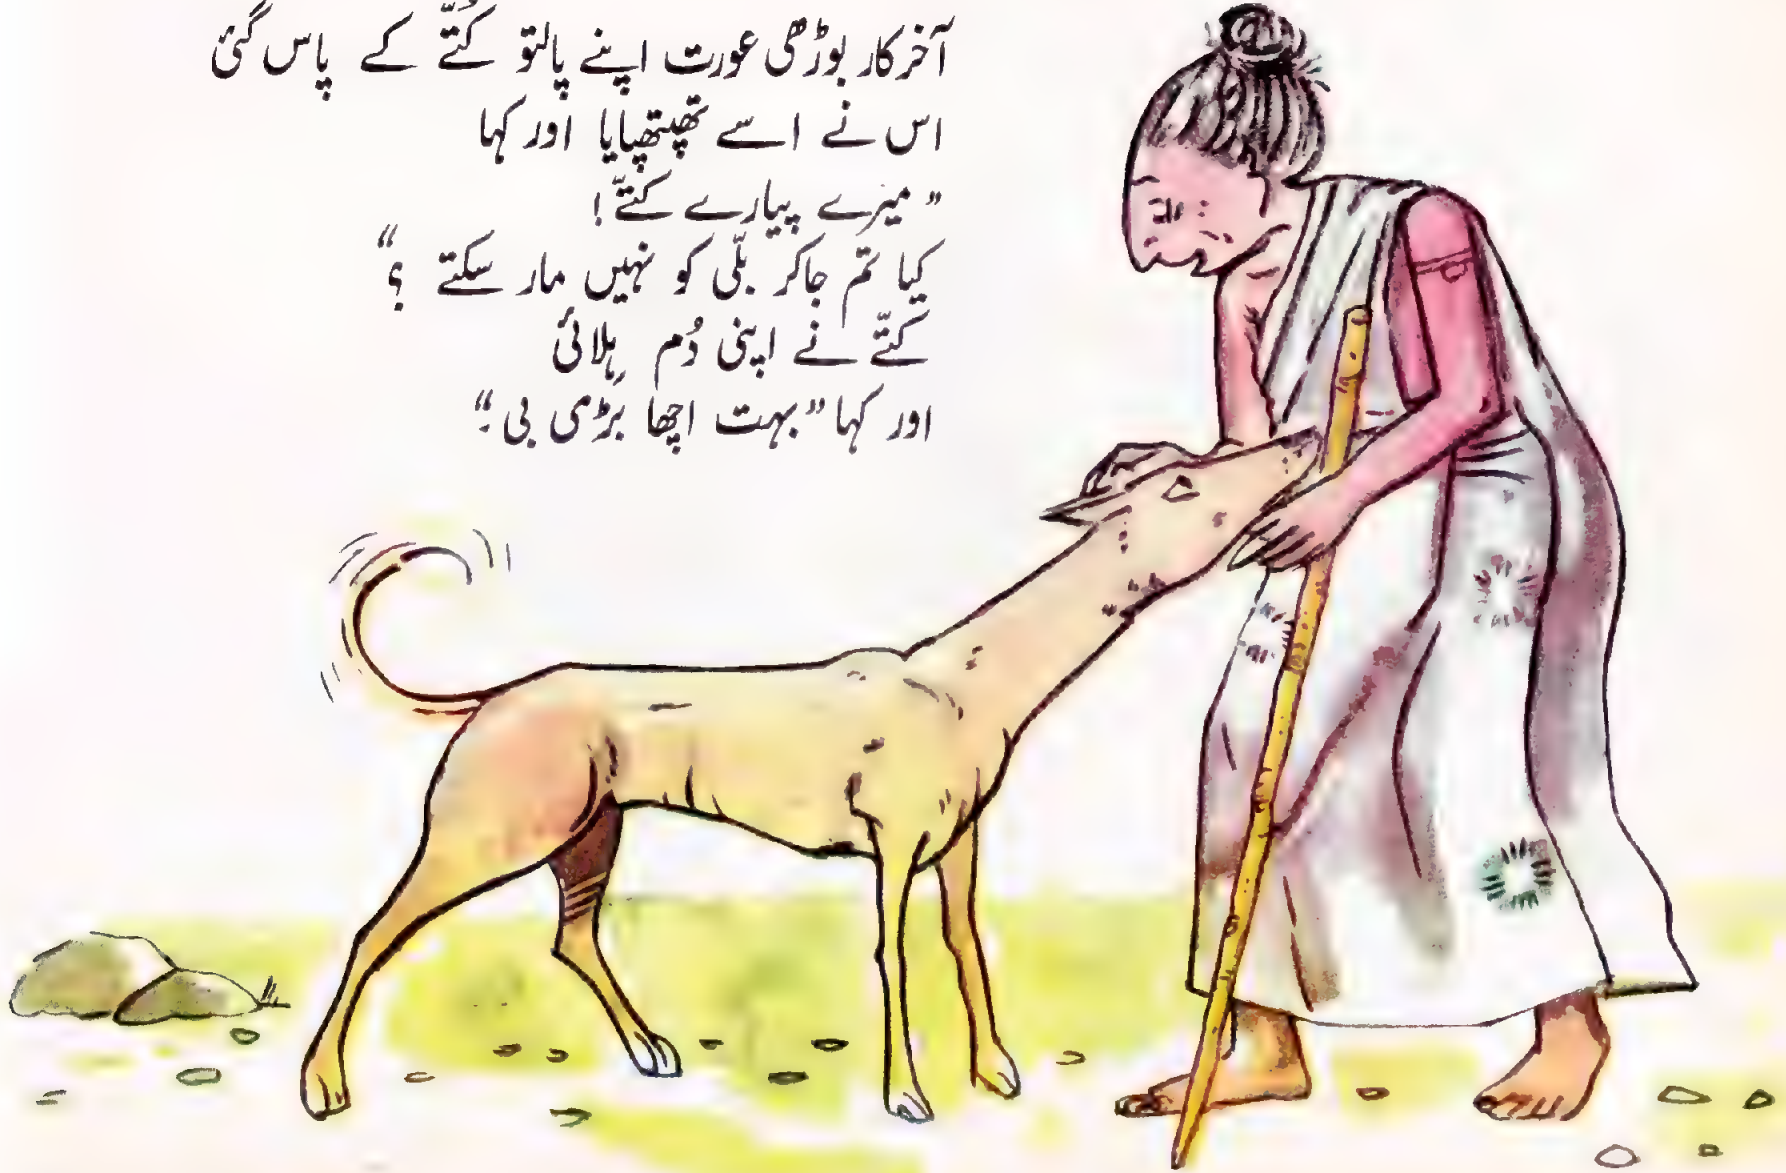 آخرکار بوڑھی عورت اپنے پالتو کُتّے کے پاس گئی
اس نے اسے تھپتھپایا اور کہا
”میرے پیارے کتّے!
کیا تم جاکر بلّی کو نہیں مار سکتے ؟“
کتّے نے اپنی دُم ہِلائی
اور کہا ”بہت اچھا بَڑی بی۔“